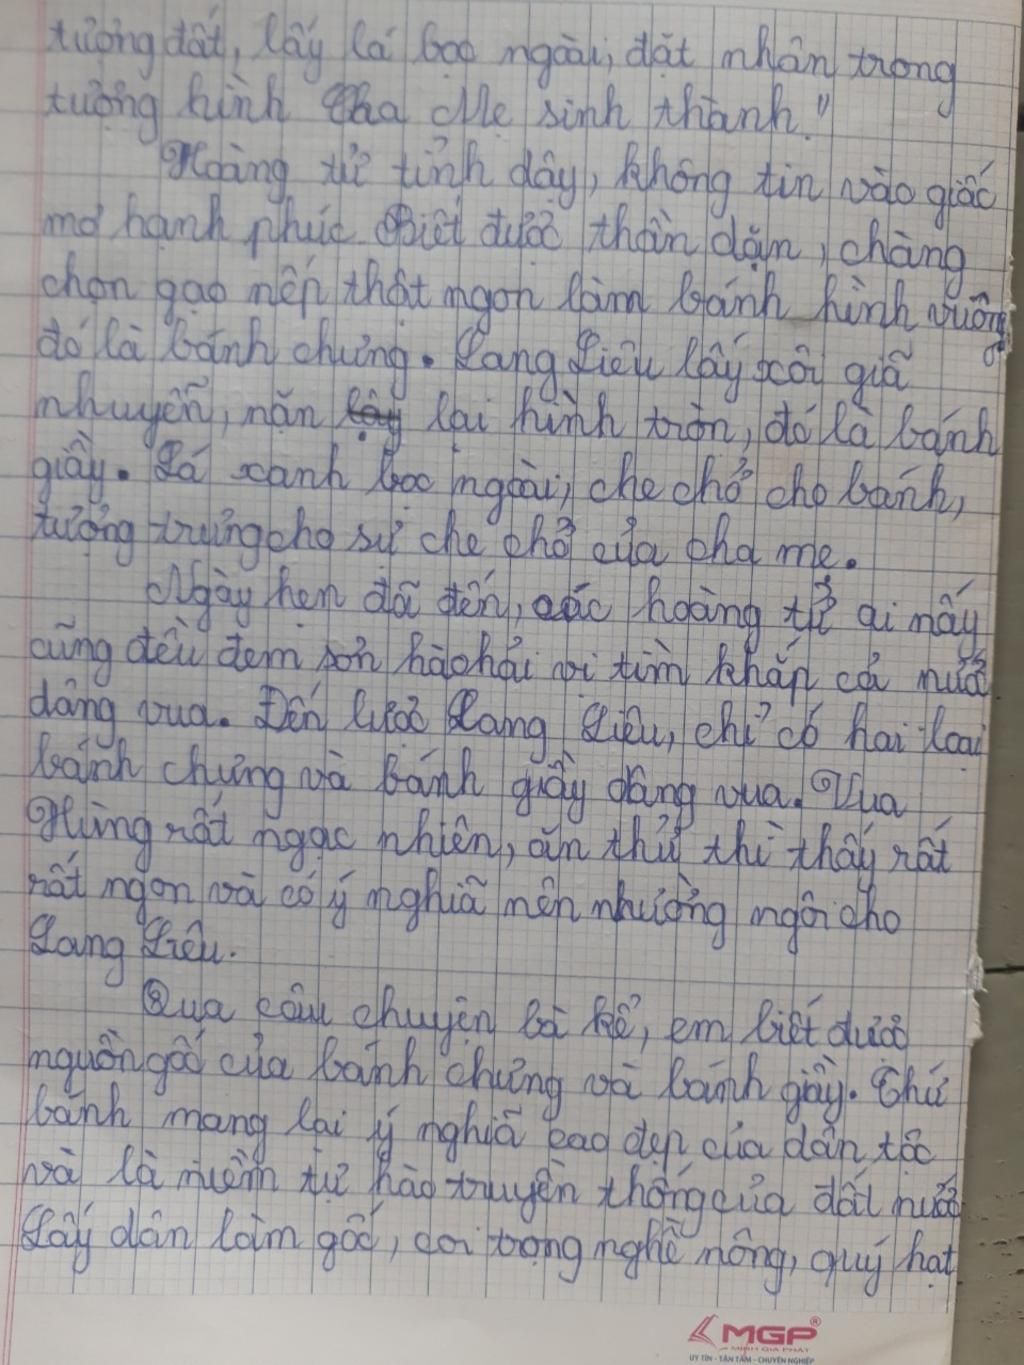 tượng đất, lấy lá bọc ngoài, đặt nhân trong
tượng hình Cha Mẹ sinh thành."
Hoàng tử tỉnh dậy, không tin vào giấc
mơ hạnh phúc. Biết được thần dặn, chàng
chọn gạo nếp thật ngon làm bánh hình vuông
đó là bánh chưng. Lang Liêu lấy xôi giã
nhuyễn, nặn lại hình tròn, đó là bánh
giầy. Lá xanh bọc ngoài, che chở cho bánh,
tượng trưng cho sự che chở của cha mẹ.
Ngày hẹn đã đến, các hoàng tử ai nấy
cũng đều đem sơn hào hải vị tìm khắp cả nước
dâng vua. Đến lượt Lang Liêu, chỉ có hai loại
bánh chưng và bánh giầy dâng vua. Vua
Hùng rất ngạc nhiên, ăn thử thì thấy rất
rất ngon và có ý nghĩa nên nhường ngôi cho
Lang Liêu.
Qua câu chuyện bà kể, em biết được
nguồn gốc của bánh chưng và bánh giầy. Thứ
bánh mang lại ý nghĩa cao đẹp của dân tộc
và là niềm tự hào truyền thống của đất nước
Lấy dân làm gốc, coi trọng nghề nông, quý hạt
MGP®
MINH GIA PHÁT
UY TÍN - TẬN TÂM - CHUYÊN NGHIỆP